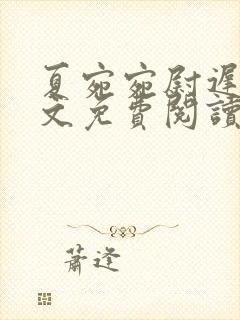 夏宛宛尉遲
文免費閱讀
蕭逢